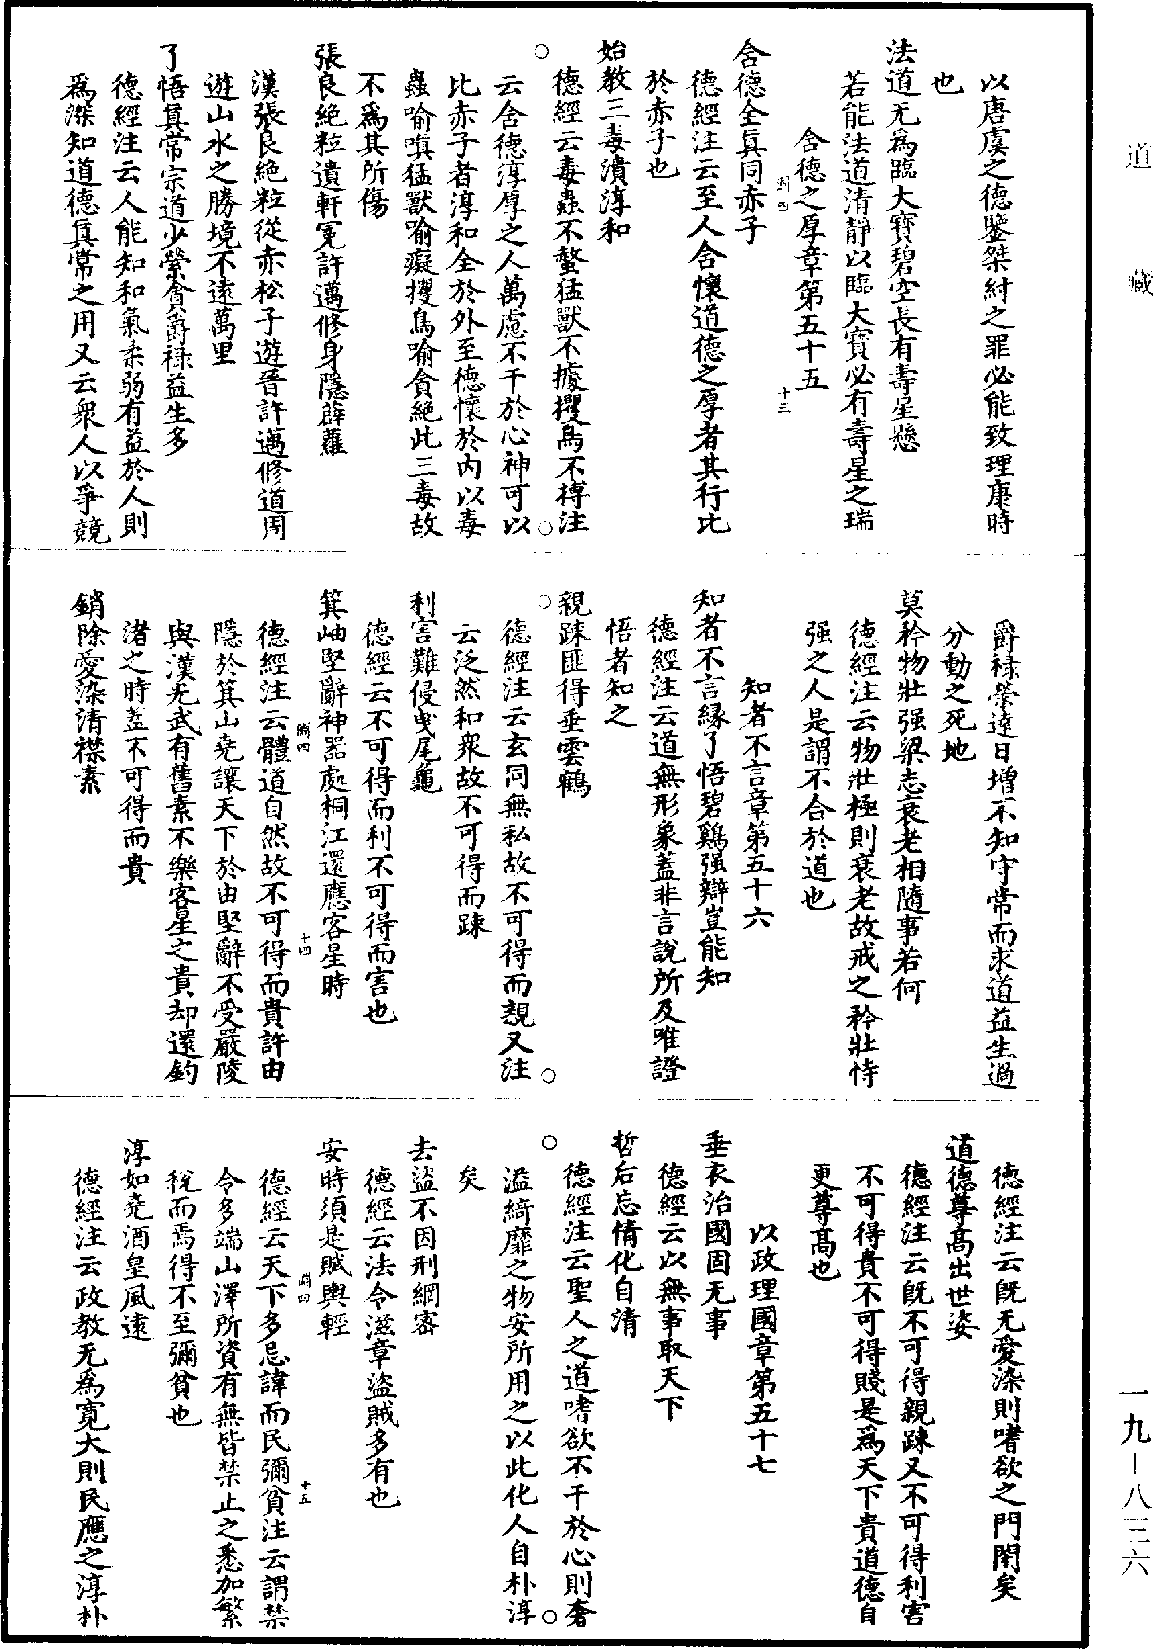 道藏
以唐虞之德鑒桀紂之罪必能致理康時
也
法道无為臨大寶碧空長有壽星懸
若能法道清靜以臨大寶必有壽星之瑞
含德之厚章第五十五
十三
含德全真同赤子
德經注云至人含懷道德之厚者其行比
於赤子也
始教三毒潰淳和
德經云毒蟲不螫猛獸不據攫鳥不搏注
云含德淳厚之人萬慮不干於心神可以
比赤子者淳和全於外至德懷於內以毒
蟲喻嗔猛獸喻癡攫鳥喻貪絕此三毒故
不為其所傷
張良絕粒遺軒冕許邁修身隱薜蘿
漢張良絕粒從赤松子遊晉許邁修道周
遊山水之勝境不遠萬里
了悟真常宗道少縈貪爵祿益生多
德經注云人能知和氣柔弱有益於人則
為深知道德真常之用又云衆人以爭競
爵祿榮達日增不知守常而求道益生過
分動之死地
莫矜物壯强梁志衰老相隨事若何
德經注云物壯極則衰老故戒之矜壯恃
强之人是謂不合於道也
知者不言章第五十六
知者不言緣了悟碧鷄强辯豈能知
德經注云道無形象蓋非言說所及唯證
悟者知之
親踈匪得垂雲鶴
德經注云玄同無私故不可得而親又注
云泛然和衆故不可得而踈
利害難侵曳尾龜
德經云不可得而利不可得而害也
十四
箕岫堅辭神器處桐江還應客星時
德經注云體道自然故不可得而貴許由
隱於箕山堯讓天下於由堅辭不受嚴陵
與漢光武有舊素不樂客星之貴却還釣
渚之時蓋不可得而貴
銷除愛染清襟素
德經注云既无愛染則嗜欲之門閉矣
道德尊高出世姿
德經注云既不可得親踈又不可得利害
不可得貴不可得賤是為天下貴道德自
更尊高也
以政理國章第五十七
垂衣治國固无事
德經云以無事取天下
哲后忘情化自清
德經注云聖人之道嗜欲不干於心則奢
溢綺靡之物安所用之以此化人自朴淳
矣
去盜不因刑網密
德經云法令滋章盜賊多有也
十五
安時須是賦輿輕
德經云天下多忌諱而民彌貧注云謂禁
令多端山澤所資有無皆禁止之悉加繁
稅而焉得不至彌貧也
淳如堯酒皇風遠
德經注云政教无為寬大則民應之淳朴
一九—八三六